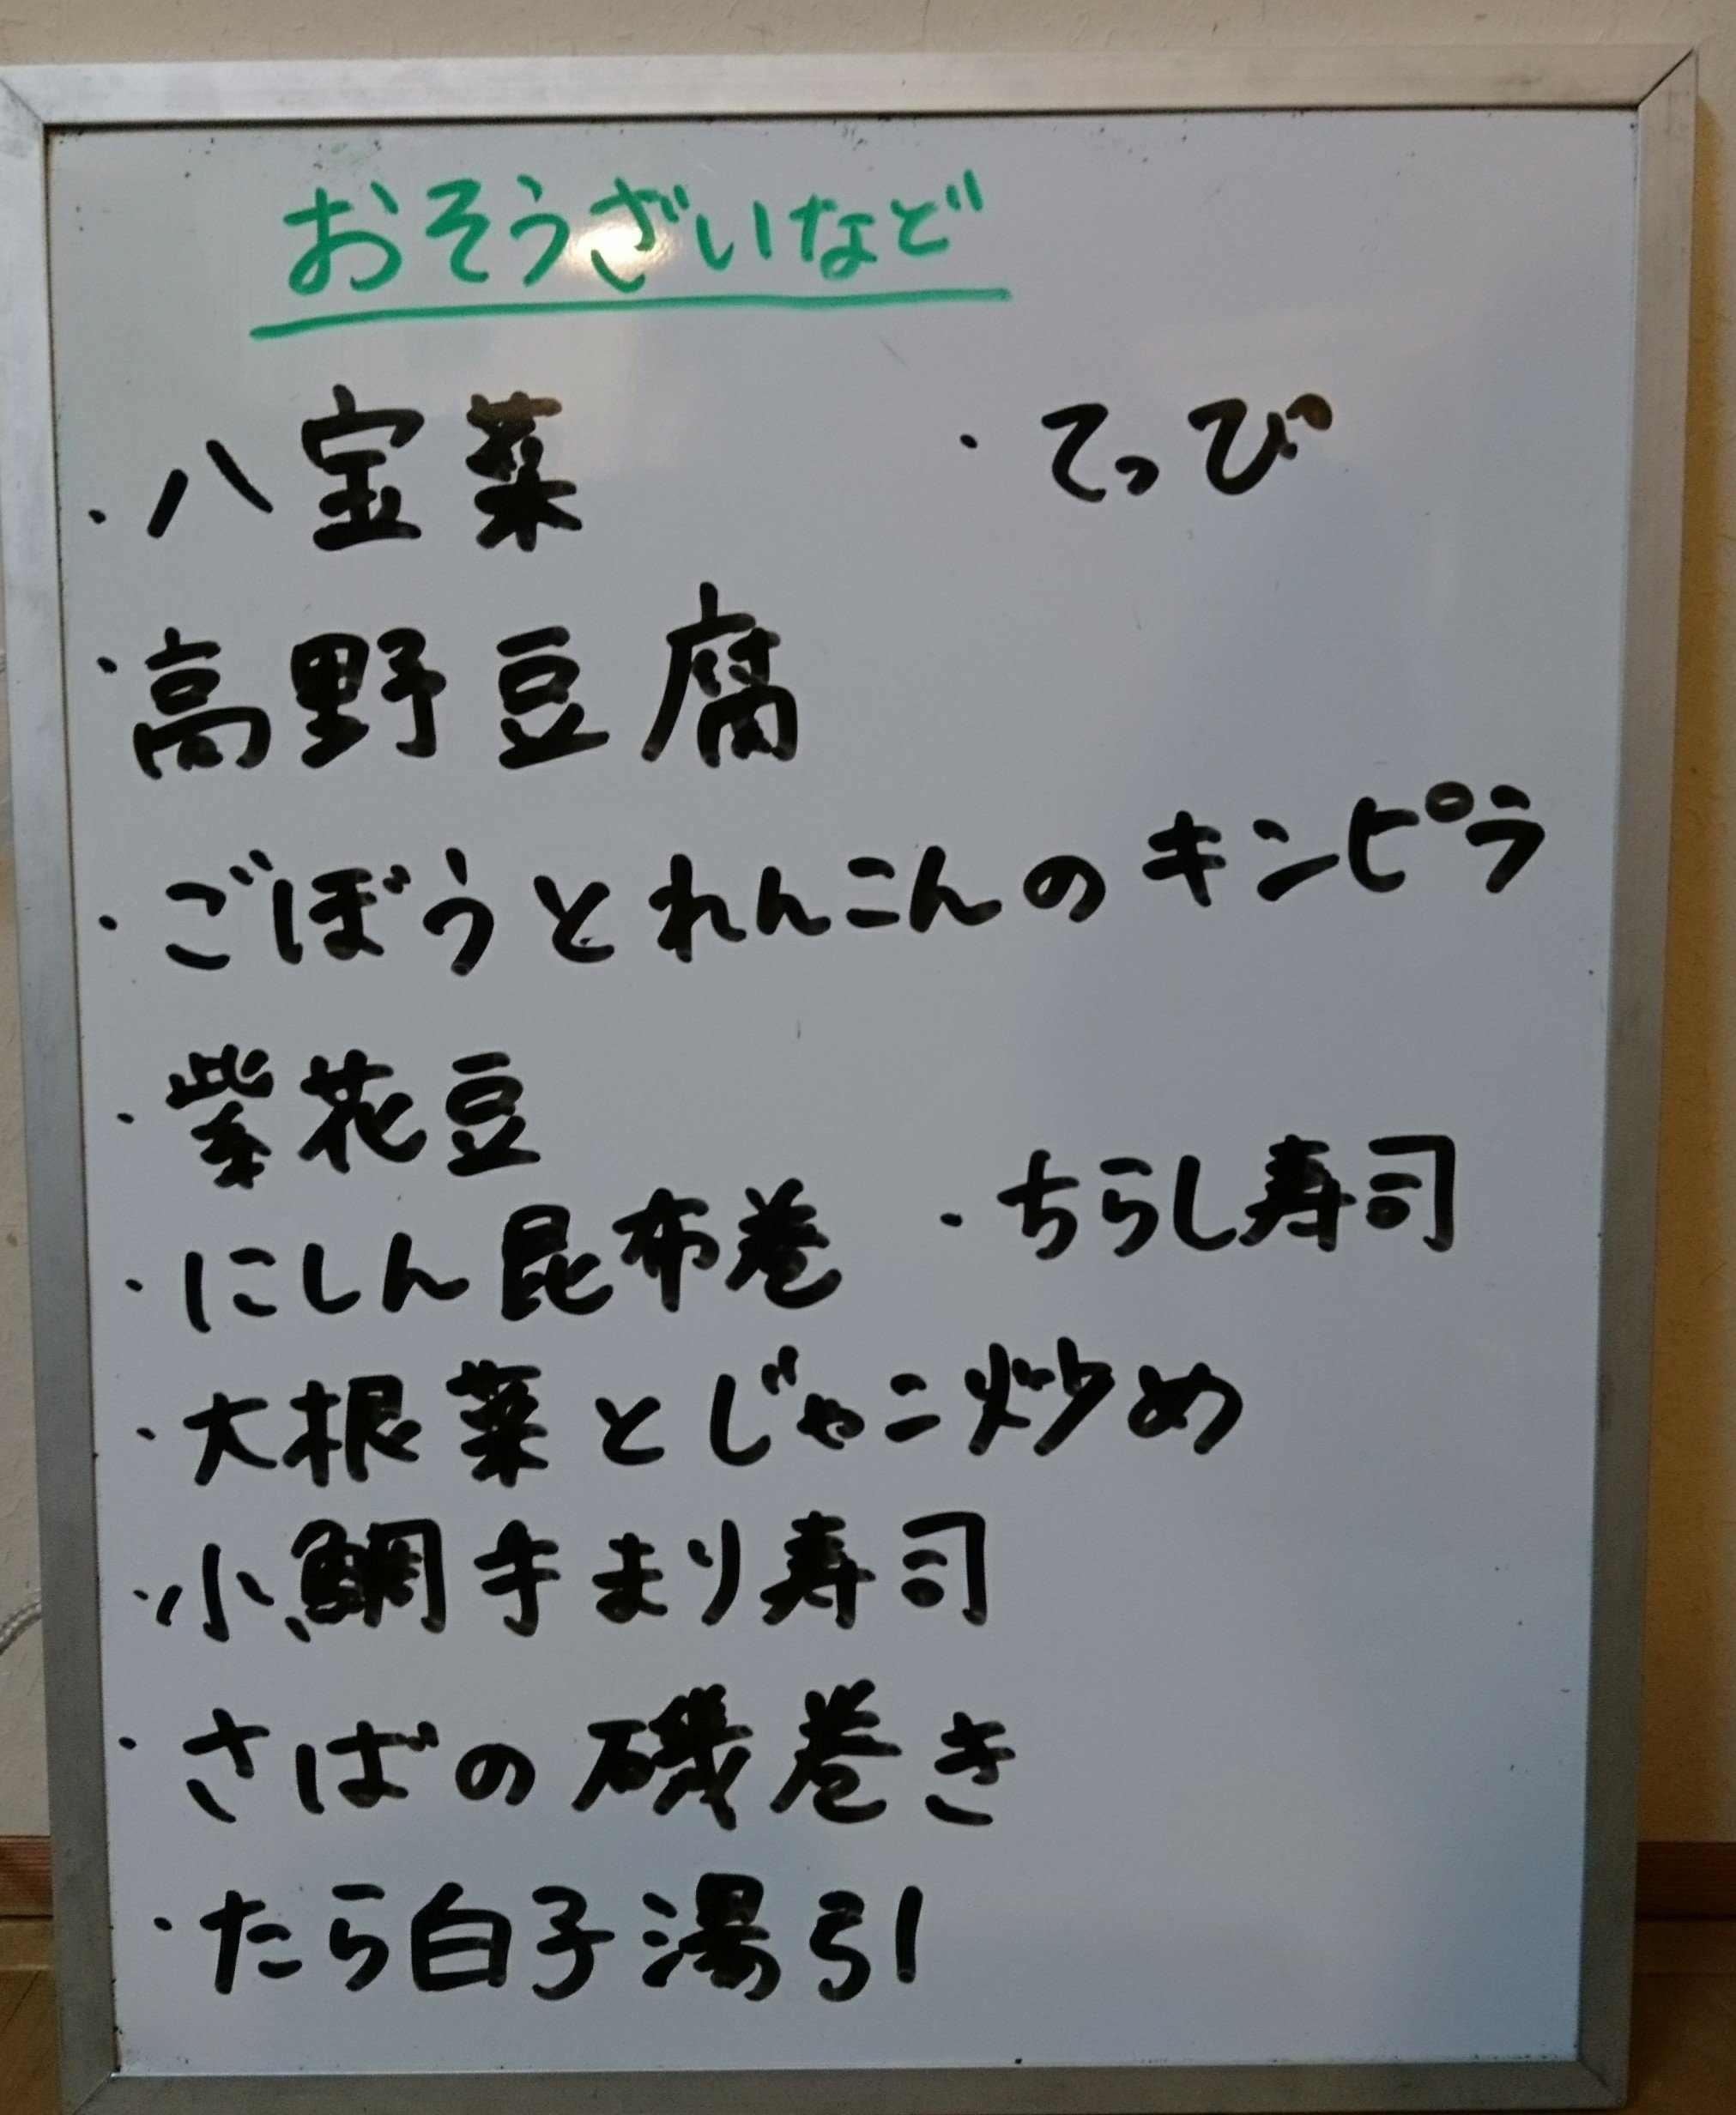 おそうざいなど
・八宝菜
・てっぴ
・高野豆腐
・ごぼうとれんこんのキンピラ
・紫花豆
・ちらし寿司
・にしん昆布巻
・大根葉とじゃこ炒め
・小鯛手まり寿司
・さばの磯巻き
・たら白子湯引